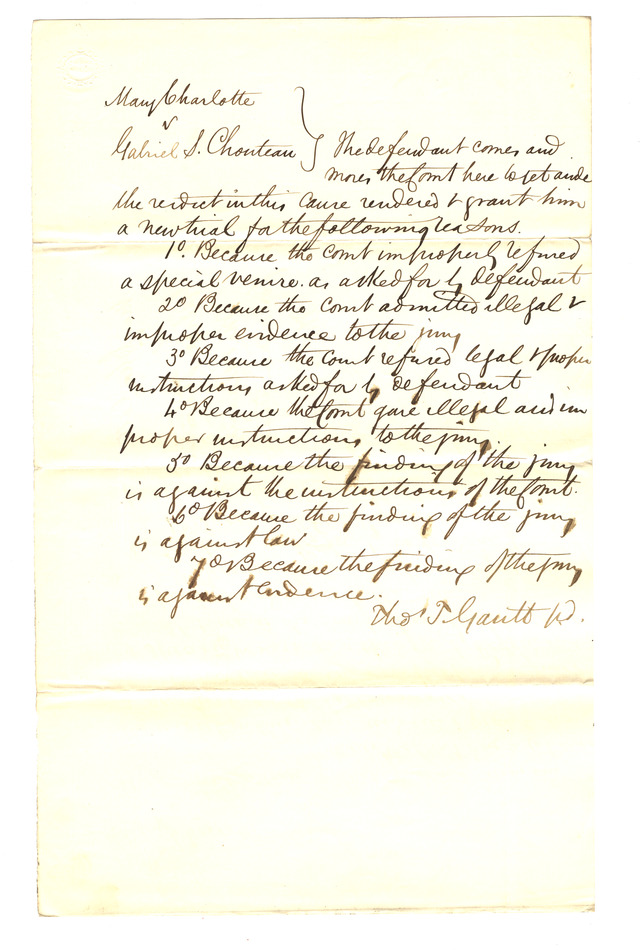 Mary Charlotte
vs
Gabriel S. Chouteau } The defendant comes and
moves the Court here to set aside
the verdict in this cause rendered & grant him
a new trial for the following reasons.
1º. Because the court improperly refused
a special venire. as asked for by defendant
2º Because the Court admitted illegal &
improper evidence to the jury
3º Because the court refused legal & proper
instructions asked for by defendant
4º Because the Court gave illegal and im
proper instructions to the jury.
5º Because the finding of the jury
is against the instructions of the Court.
6º Because the finding of the jury
is against law
7º Because the finding of the jury
is against evidence.
Thos T. Gantt p.d.